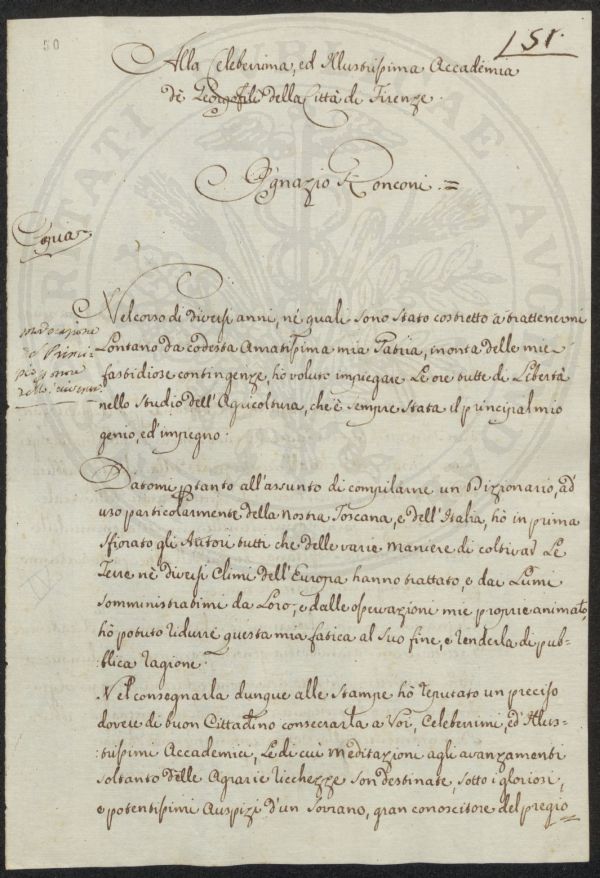 50
151.
Alla Celeberrima, ed Illustrissima Accademia
dè Georgofili della Città di Firenze.
Ignazio Ronconi =
Copia
Nel corso di diversi anni, nè quali sono stato costretto a trattenermi
Lontano da codesta Amatissima mia Patria, in onta delle mie
fastidiose contingenze, hò voluto impiegare Le ore tutte di Libertà
nello Studio dell'Agricoltura, che è sempre stata il principal mio
genio, ed'impegno:
Datomi ptanto all'assunto di compilarne un Dizionario, ad
uso particolarmente della nostra Toscana, e dell'Italia, hò in prima
sfiorato gli Autori tutti che delle varie maniere di coltivar Le
Terre nè diversi Climi dell'Europa hanno trattato, e dai Lumi
somministratimi da Loro, e dalle osservazioni mie proprie animato,
hò potuto ridurre questa mia fatica al suo fine, e renderla di pub=
:blica ragione.
Nel consegnarla dunque alle Stampe hò reputato un preciso
dovere di buon Cittadino consecrarla a Voi, Celeberrimi, ed'Illus=
:trissimi Accademici, Le di cui meditazioni agli avanzamenti
soltanto delle Agrarie ricchezze son destinate, sotto i gloriosi,
e potentissimi Auspizi d'un Sovrano, gran conoscitore del pregio=